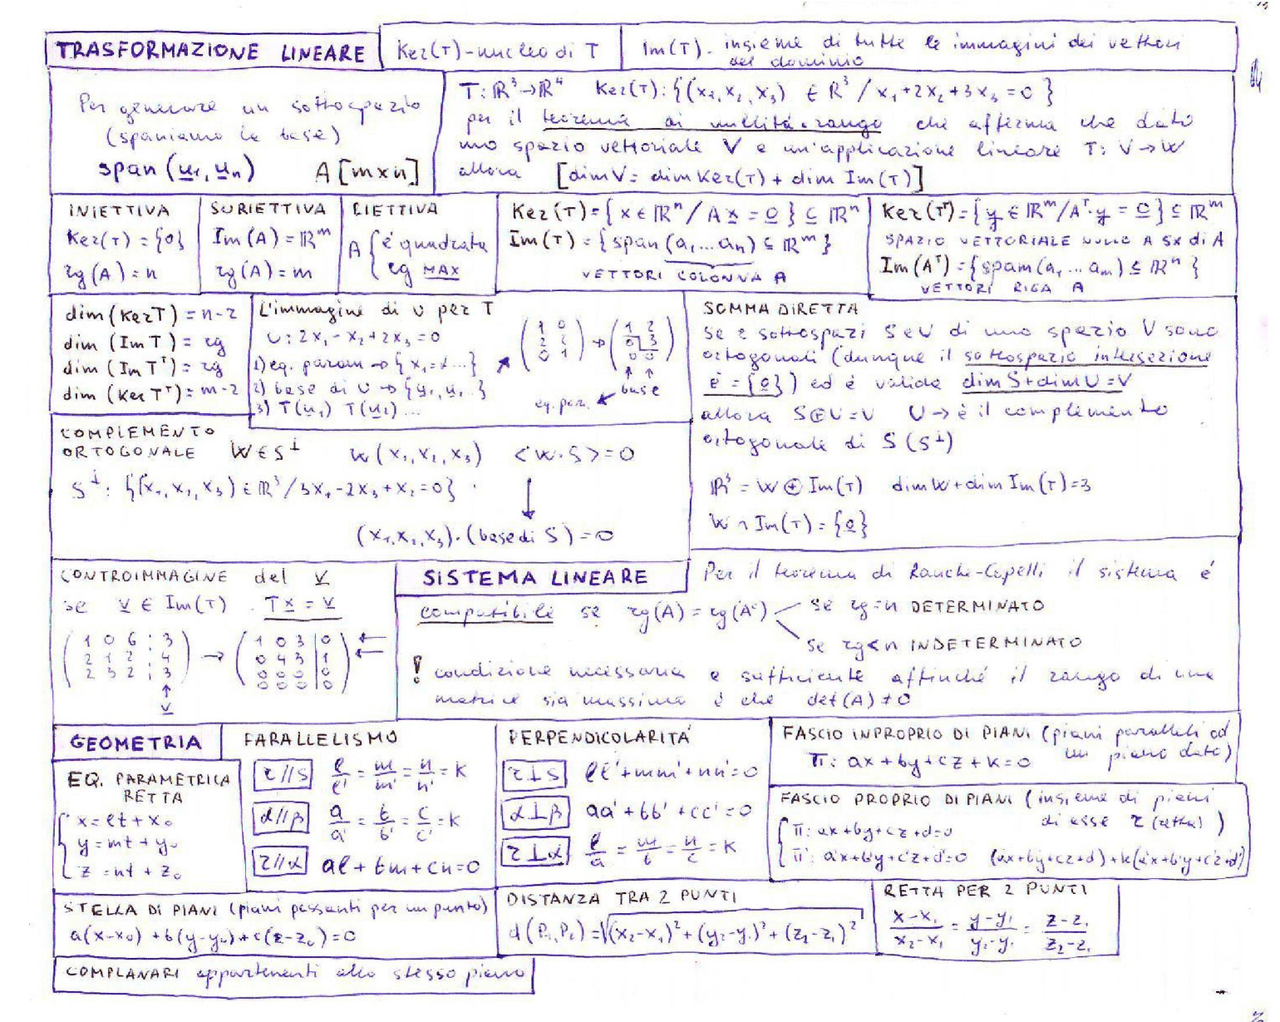 TRASFORMAZIONE LINEARE
Ker(T) - nucleo di T
Im(T) - insieme di tutte le immagini dei vettori
del dominio
Per generare un sottospazio
(spaniamo le base)
span (u₁, uₙ) A [m×n]
T: ℝ³→ℝ⁴ Ker(T): {(x₁, x₂, x₃) ∈ ℝ³ / x₁+2x₂+3x₃=0}
per il teorema di nullità-rango che afferma che dato
uno spazio vettoriale V e un'applicazione lineare T: V→W
allora [dim V = dim Ker(T) + dim Im(T)]
INIETTIVA
Ker(T) = {0}
rg(A) = n
SURIETTIVA
Im(A) = ℝᵐ
rg(A) = m
BIETTIVA
A { è quadrata
rg MAX
Ker(T) = {x ∈ ℝⁿ / Ax = 0} ⊆ ℝⁿ
Im(T) = {span (a₁...aₙ) ⊆ ℝᵐ}
VETTORI COLONNA A
Ker(Tᵀ) = {y ∈ ℝᵐ / Aᵀ·y = 0} ⊆ ℝᵐ
SPAZIO VETTORIALE NULLO A SX di A
Im(Aᵀ) = {spam (a₁...aₘ) ⊆ ℝⁿ}
VETTORI RIGA A
dim (Ker T) = n-r
dim (Im T) = rg
dim (Im Tᵀ) = rg
dim (Ker Tᵀ) = m-r
L'immagine di U per T
U: 2x₁-x₂+2x₃=0
1) eq. param → {x₁=t...}
2) base di U → {u₁, u₂..}
3) T(u₁) T(u₂)...
eq. par. base
SOMMA DIRETTA
Se 2 sottospazi S e U di uno spazio V sono
ortogonali (dunque il sottospazio intersezione
è = {0}) ed è valida dim S+dim U=V
allora S⊕U=V U → è il complemento
ortogonale di S (S⊥)
ℝ³ = W ⊕ Im(T) dim W + dim Im(T) = 3
W ∩ Im(T) = {0}
COMPLEMENTO
ORTOGONALE W ∈ S⊥ w (x₁, x₂, x₃) <w·S> = 0
S⊥: {(x₁, x₂, x₃) ∈ ℝ³ / 3x₁-2x₃+x₂=0}
(x₁, x₂, x₃)·(base di S) = 0
CONTROIMMAGINE del v
se v ∈ Im(T). Tx = v
1 0 6 : 3
2 1 2 : 4
2 3 2 : 3
v
→
1 0 3 | 0
0 4 3 | 1
0 0 0 | 0
0 0 0 | 0
SISTEMA LINEARE
Per il teorema di Rouche-Capelli il sistema è
compatibile se rg(A) = rg(A') se rg=n DETERMINATO
se rg<n INDETERMINATO
! condizione necessaria e sufficiente affinché il rango di una
matrice sia massimo è che det(A) ≠ 0
GEOMETRIA
EQ. PARAMETRICA
RETTA
x = lt + x₀
y = mt + y₀
z = nt + z₀
PARALLELISMO
r//s l/l' = m/m' = n/n' = K
α//β a/a' = b/b' = c/c' = K
r//α al + bm + cn = 0
PERPENDICOLARITÀ
r⊥s ll' + mm' + nn' = 0
α⊥β aa' + bb' + cc' = 0
r⊥α l/a = m/b = n/c = K
FASCIO INPROPRIO DI PIANI (piani paralleli ad
un piano dato)
π: ax + by + cz + k = 0
FASCIO PROPRIO DI PIANI (insieme di piani
di asse r (retta))
π: ax+by+cz+d=0
π': a'x+b'y+c'z+d'=0 (ax+by+cz+d)+k(a'x+b'y+c'z+d')
STELLA DI PIANI (piani passanti per un punto)
a(x-x₀) + b(y-y₀) + c(z-z₀) = 0
DISTANZA TRA 2 PUNTI
d (P₁, P₂) = √(x₂-x₁)² + (y₂-y₁)² + (z₂-z₁)²
RETTA PER 2 PUNTI
x-x₁/x₂-x₁ = y-y₁/y₂-y₁ = z-z₁/z₂-z₁
COMPLANARI appartenenti allo stesso piano